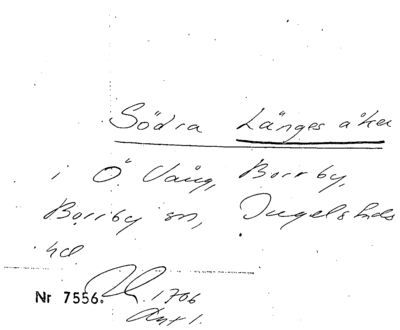 Södra Länges åker
i Ö. Vång, Borrby,
Borrby sn, Ingelstads
hd
Nr 7556. 1706
Akt 1.